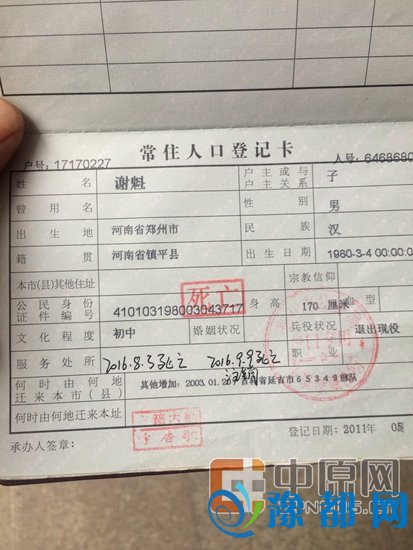 常住人口登记卡
户号: 17170227 人号: 6468680
姓名 谢魁 户主或与户主关系 子
曾用名 性别 男
出生地 河南省郑州市 民族 汉
籍贯 河南省镇平县 出生日期 1980-3-4 00:00:0
本市(县)其他住址 宗教信仰
公民身份证件编号 410103198003043717 死亡 身高 170 厘米 型
文化程度 初中 婚姻状况 兵役状况 退出现役
服务处所 职业
2016.8.3死亡 2016.9.9死亡
注销
何时由何地迁来本市(县) 其他增加: 2003.01.26 吉林省延吉市65349部队
何时由何地迁来本址
承办人签章: 登记日期: 2011年 0
中原网
ZYNEWS.CN
豫都网